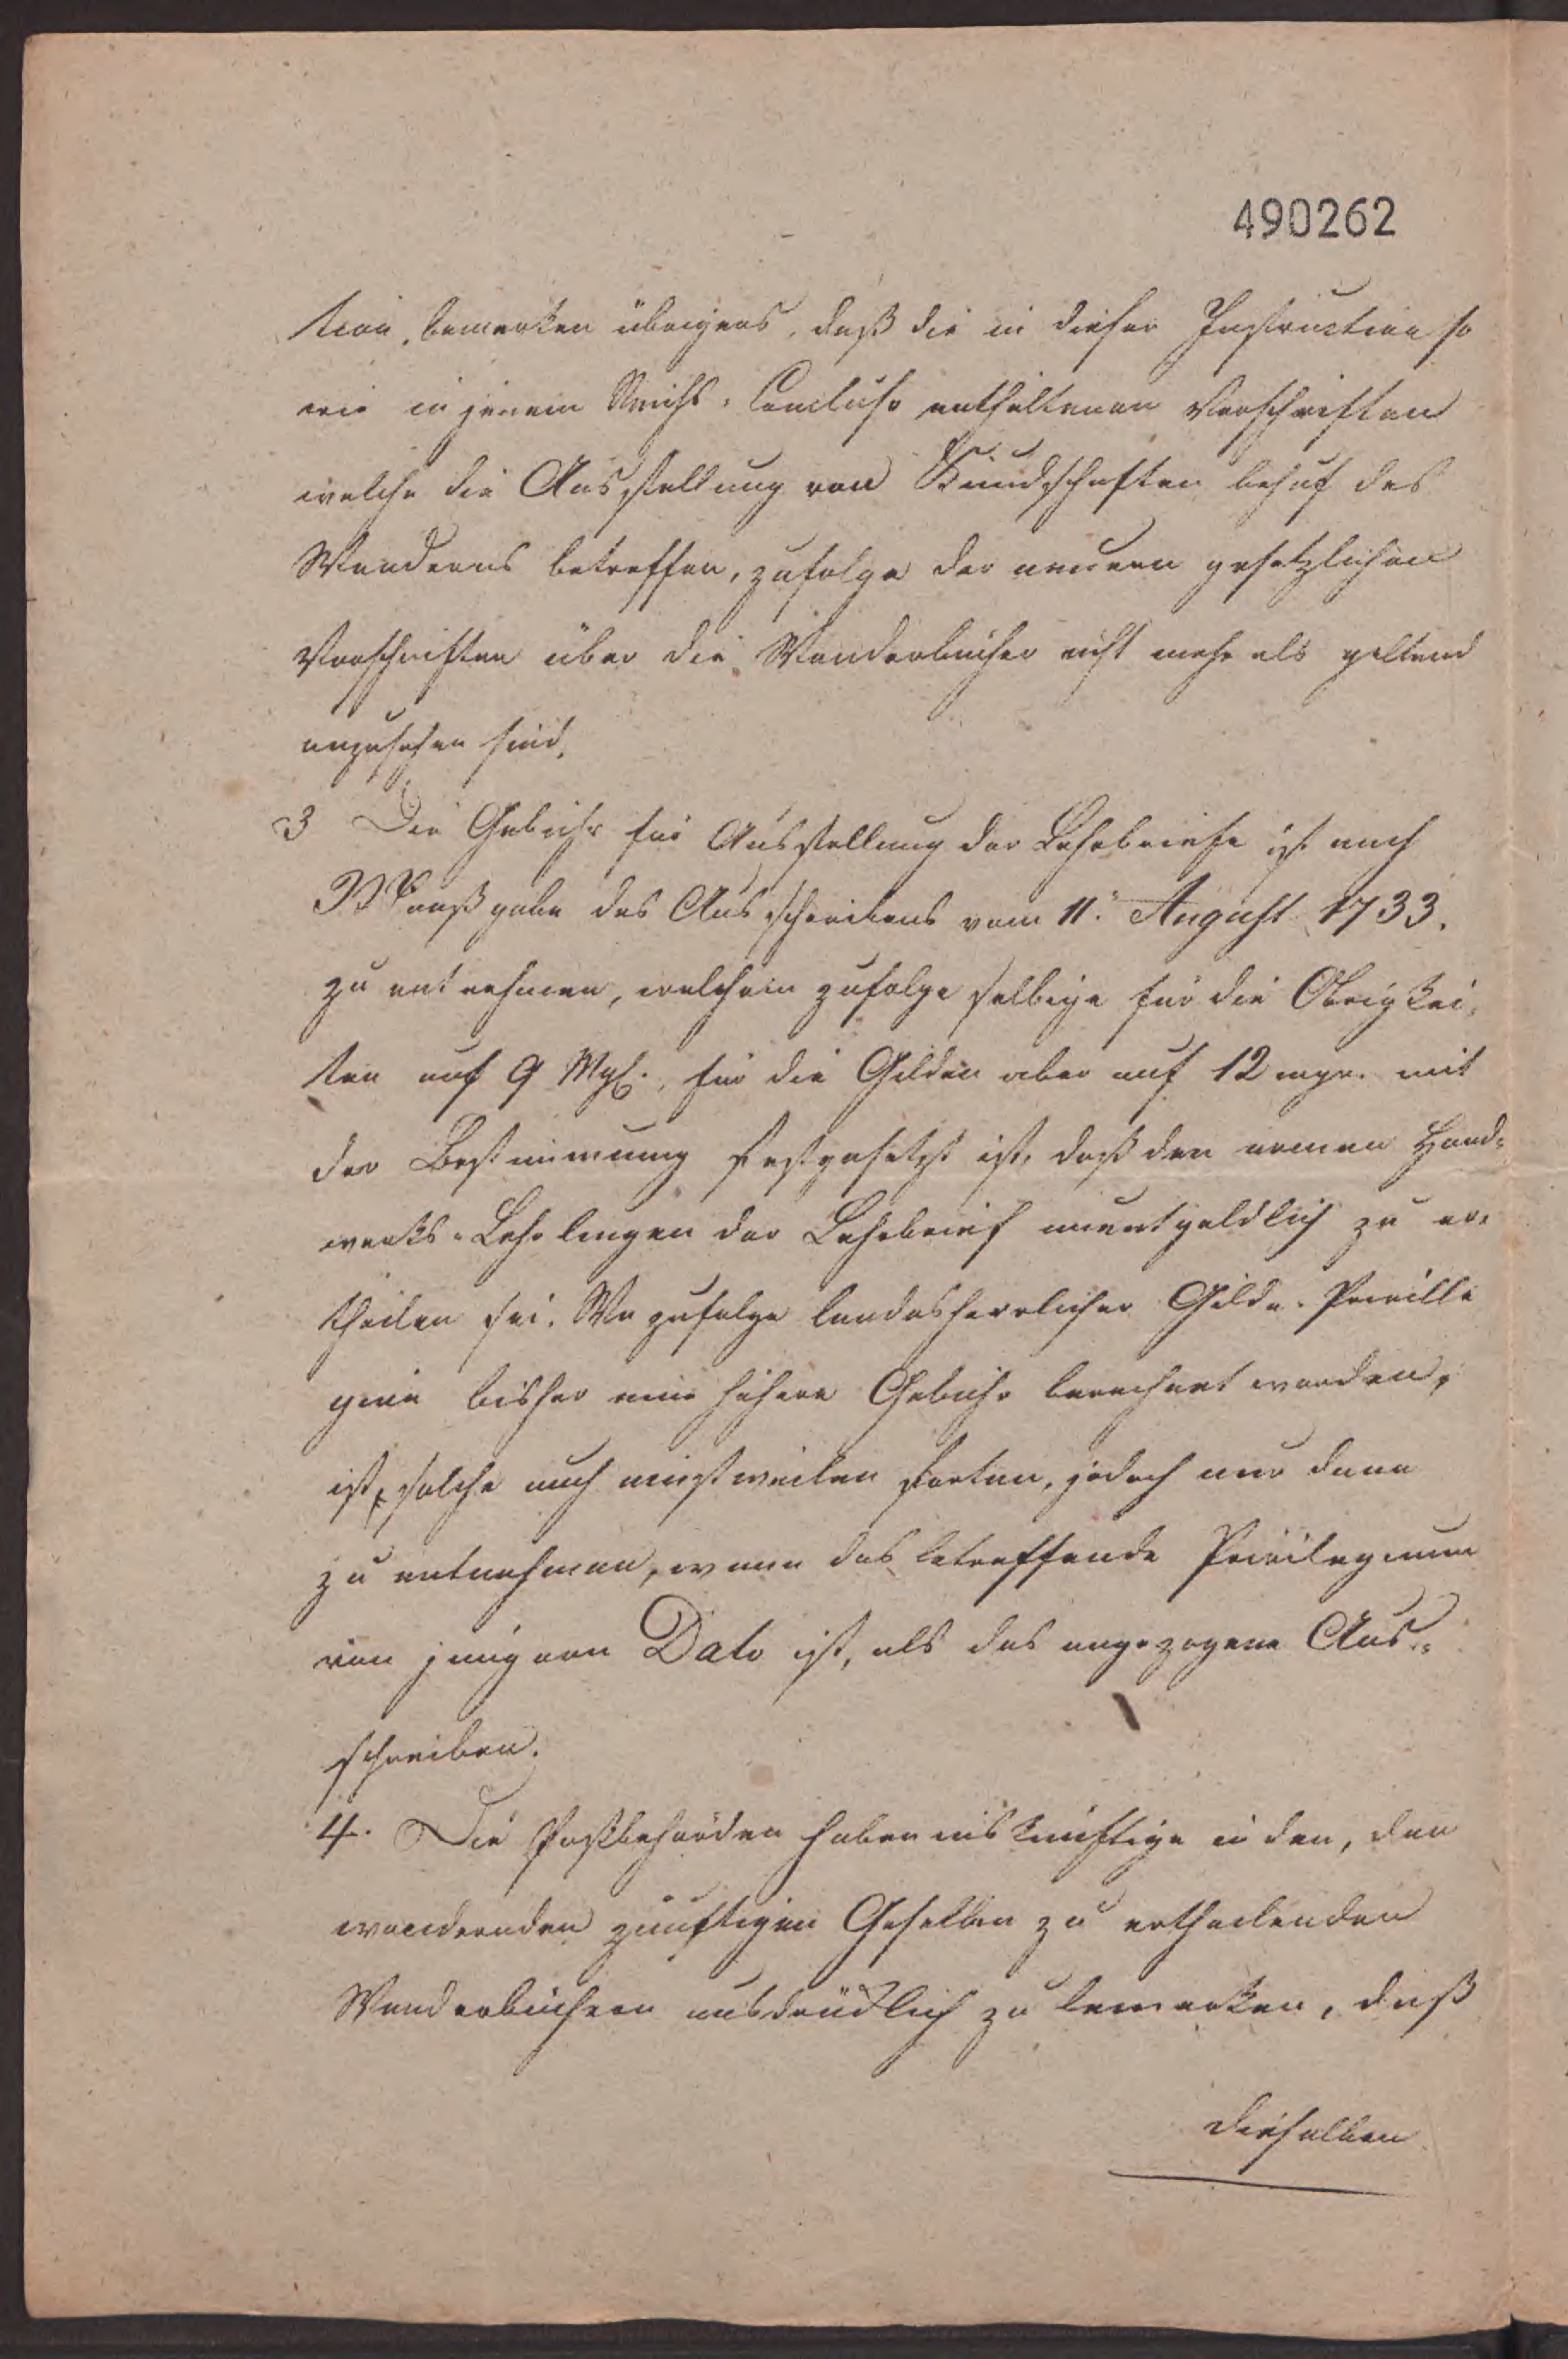 490262
tion, bemerken übrigens, daß die in dieser Instruction so
wie in jenem Reichs-Concluso enthaltenen Vorschriften
welche die Ausstellung von Kundschaften behuf des
Wanderns betreffen, zufolge der neuern gesetzlichen
Vorschriften über die Wanderbücher nicht mehr als geltend
anzusehen sind.
3 Die Gebühr für Ausstellung der Lehrbriefe ist nach
Maaßgabe des Ausschreibens vom 11. August 1733.
zu entnehmen, welchem zufolge selbige für die Obrigkei-
ten auf 9 Mg., für die Gilden aber auf 12 mgr. mit
der Bestimmung festgesetzt ist, daß den armen Hand-
werks-Lehrlingen der Lehrbrief unentgeldlich zu er-
theilen sei. Wo zufolge landesherrlicher Gilde-Priville
gien bisher eine höhere Gebühr berechnet worden,
ist, solche auch einstweilen fortan, jedoch nur dann
zu entnehmen, wenn das betreffende Privilegium
von jüngern Dato ist, als das angezogene Aus-
schreiben.
4. Die Paßbehörden haben inskünftige in den, den
wandernden zünftigen Gesellen zu ertheilenden
Wanderbüchern ausdrücklich zu bemerken, daß
dieselben